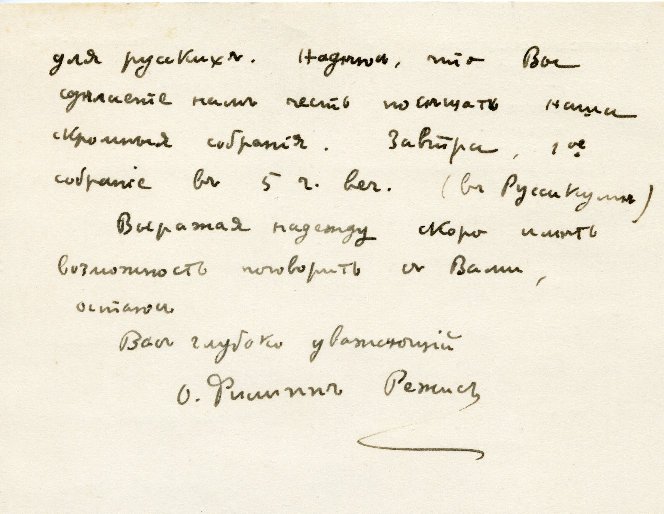 для русскихъ. Надѣюсь, что Вы
сдѣлаете намъ честь посѣщать наши
скромныя собранія. Завтра, 1ое
собраніе въ 5 ч. веч. (въ Руссикумѣ)
Выражая надежду скоро имѣть
возможность поговорить съ Вами,
остаюсь
Васъ глубоко уважающій
о. Филиппъ Режисъ